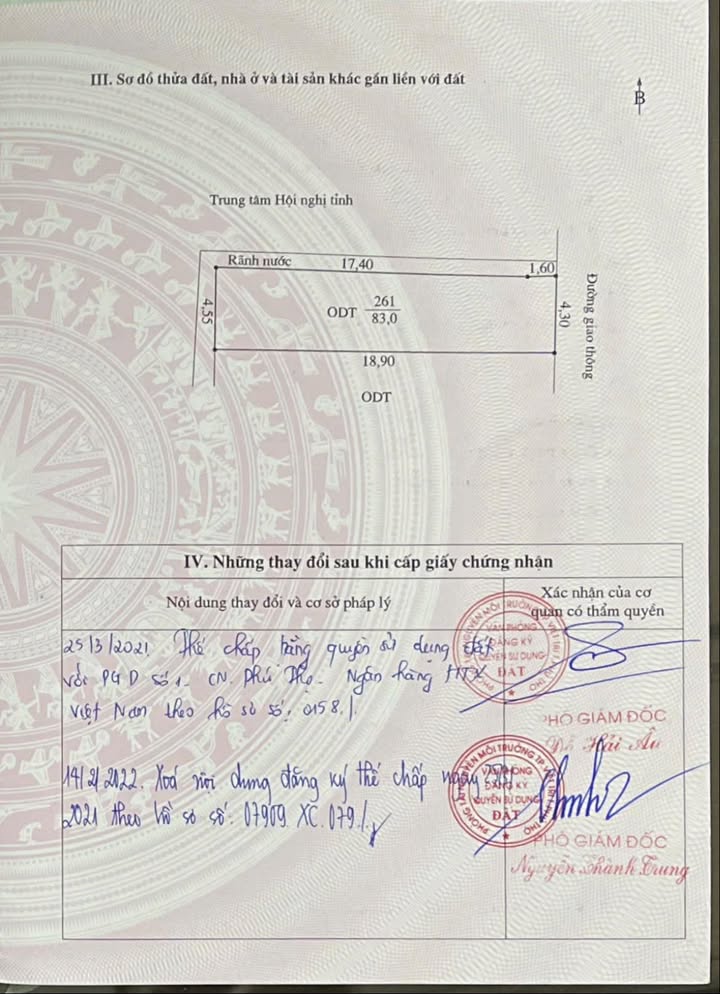 III. Sơ đồ thửa đất, nhà ở và tài sản khác gắn liền với đất
B
Trung tâm Hội nghị tỉnh
Rãnh nước 17,40 1,60
4,55
ODT 261
83,0
4,30
Đường giao thông
18,90
ODT
IV. Những thay đổi sau khi cấp giấy chứng nhận
Nội dung thay đổi và cơ sở pháp lý
Xác nhận của cơ
quan có thẩm quyền
25/3/2021. Thế chấp bằng quyền sử dụng đất
với PGD số 1. CN. Phú Thọ. Ngân hàng HTX
Việt Nam theo hồ sơ số: 0158./.
VĂN PHÒNG
ĐĂNG KÝ
QUYỀN SỬ DỤNG
ĐẤT
PHÓ GIÁM ĐỐC
Đỗ Hải Âu
14/2/2022. Xoá nội dung đăng ký thế chấp ngày
2021 theo hồ sơ số: 07909.XC.079./.
VĂN PHÒNG
ĐĂNG KÝ
QUYỀN SỬ DỤNG
ĐẤT
PHÓ GIÁM ĐỐC
Nguyễn Thành Trung